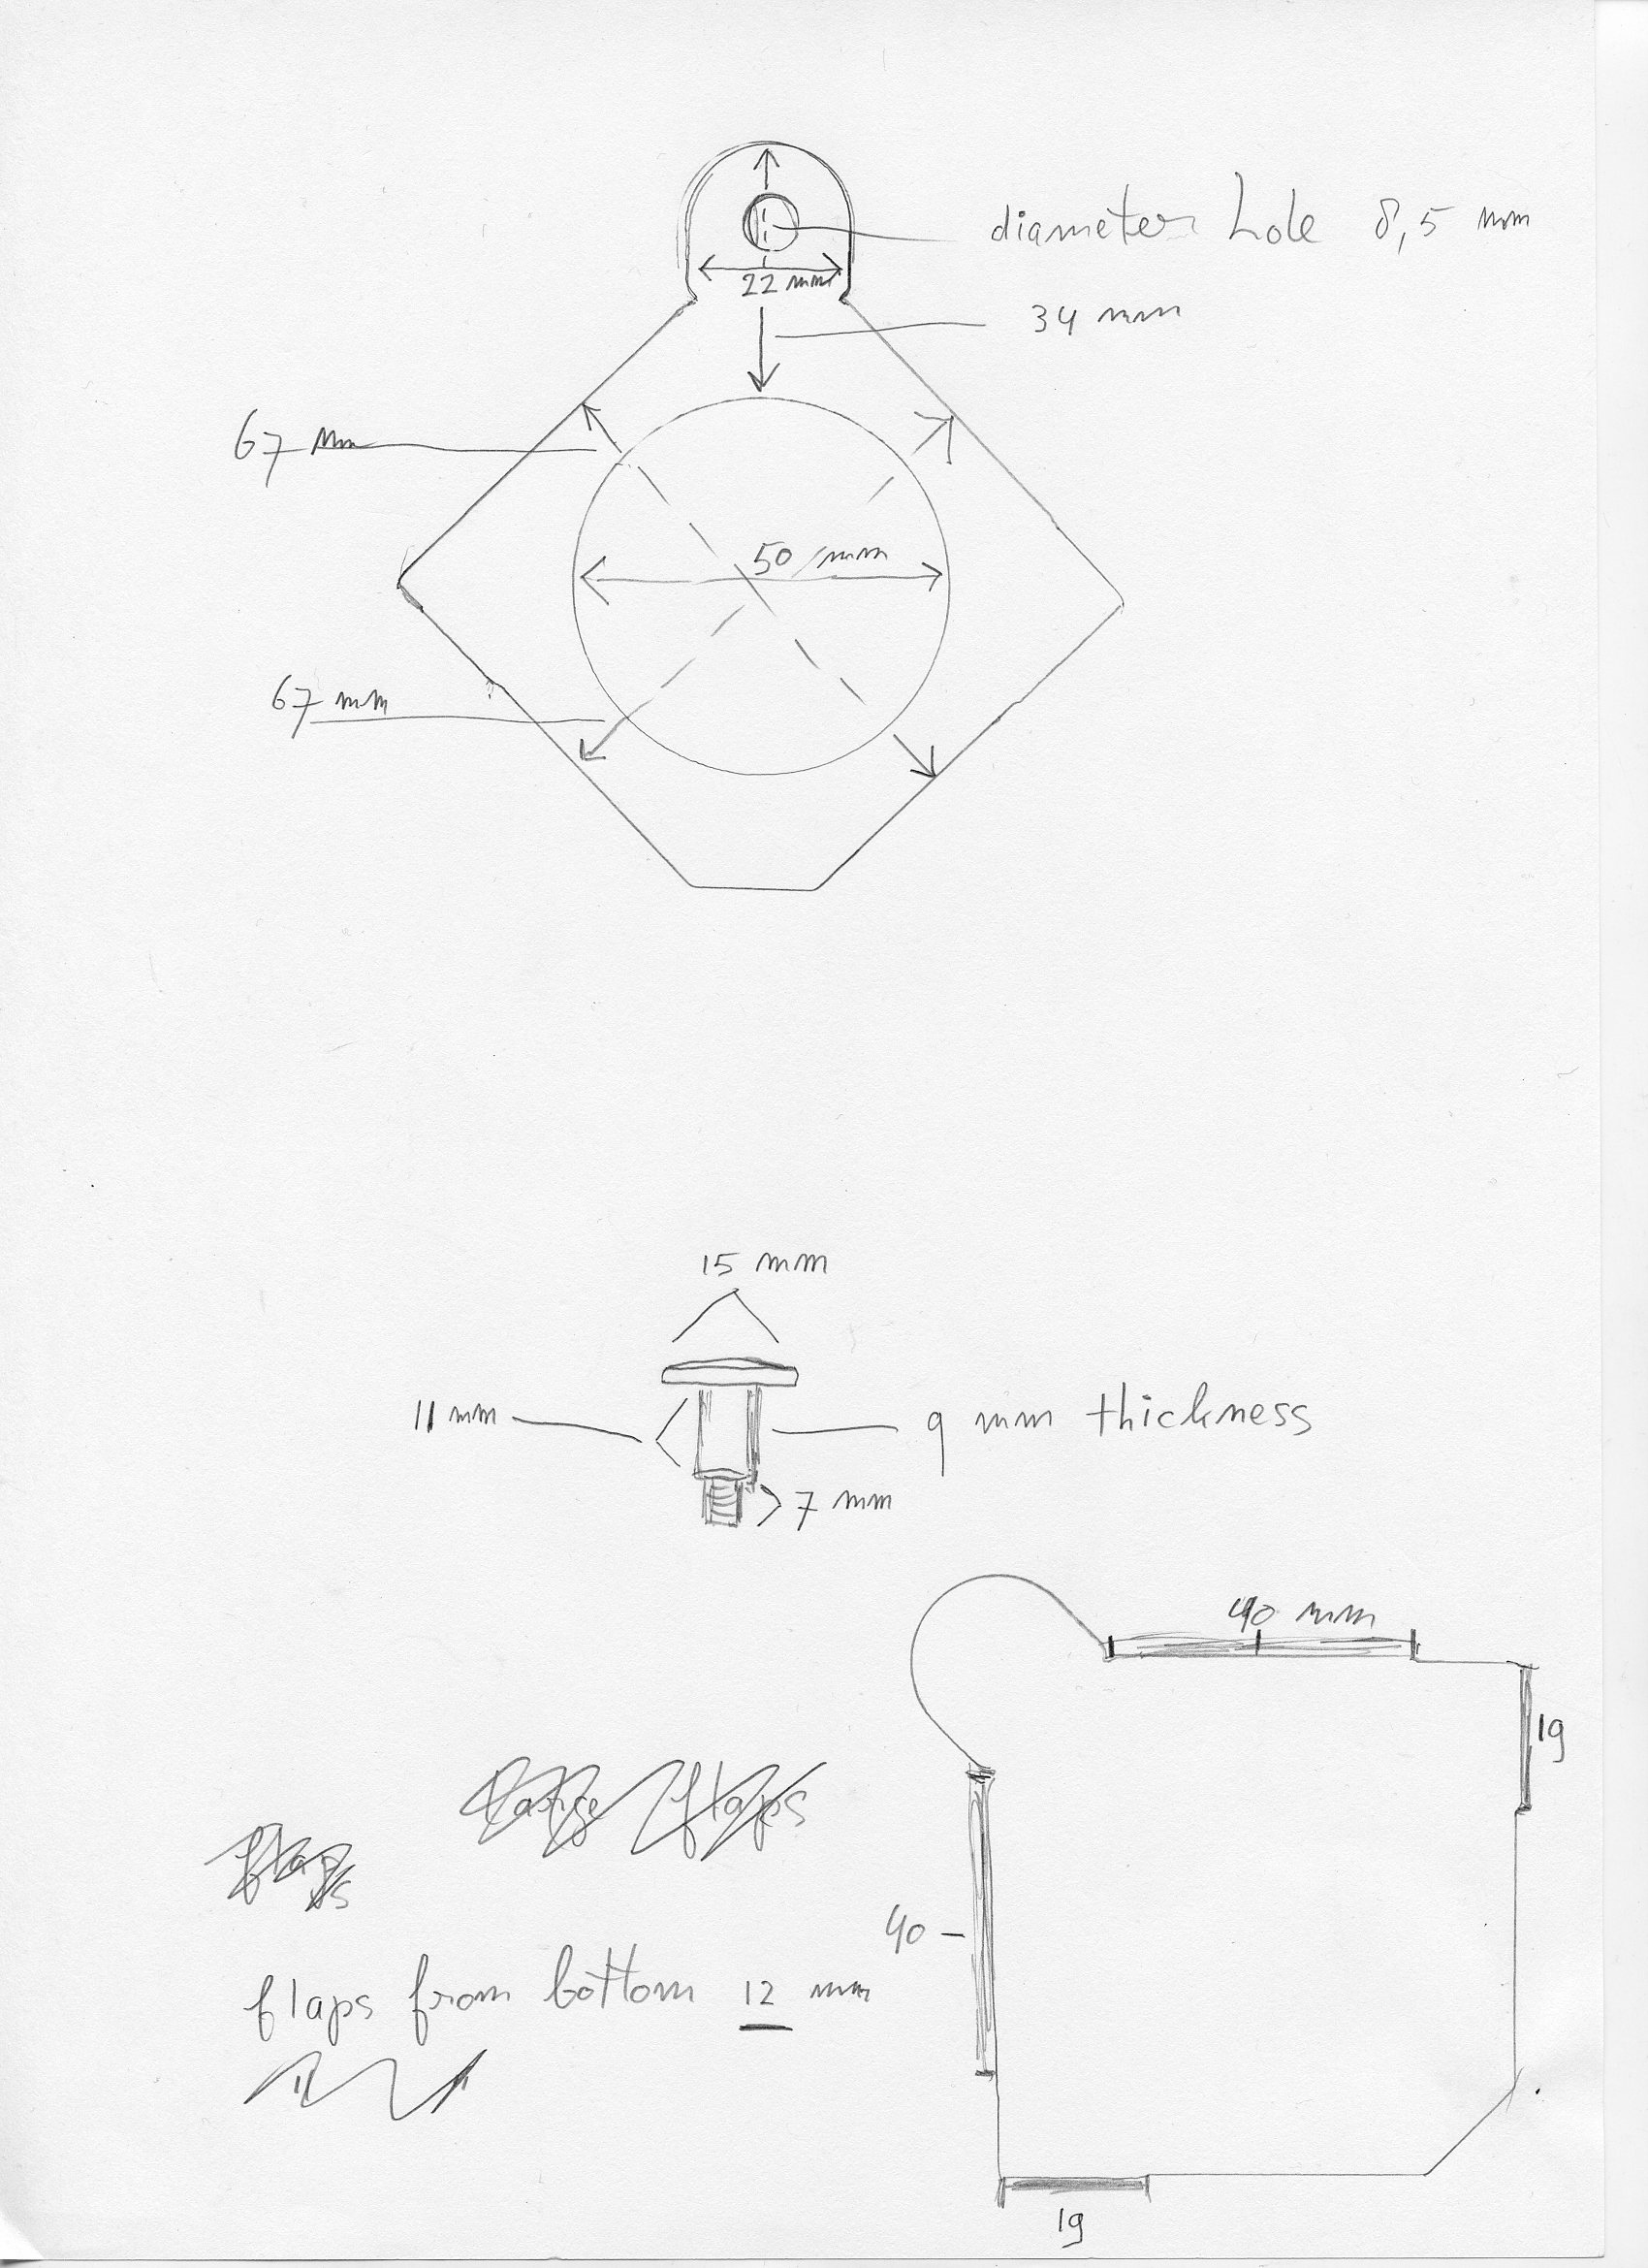 diameter hole 8,5 mm
22 mm
34 mm
67 mm
50 mm
67 mm
15 mm
11 mm
9 mm thickness
7 mm
40 mm
19
large flaps
flaps
40
flaps from bottom 12 mm
19